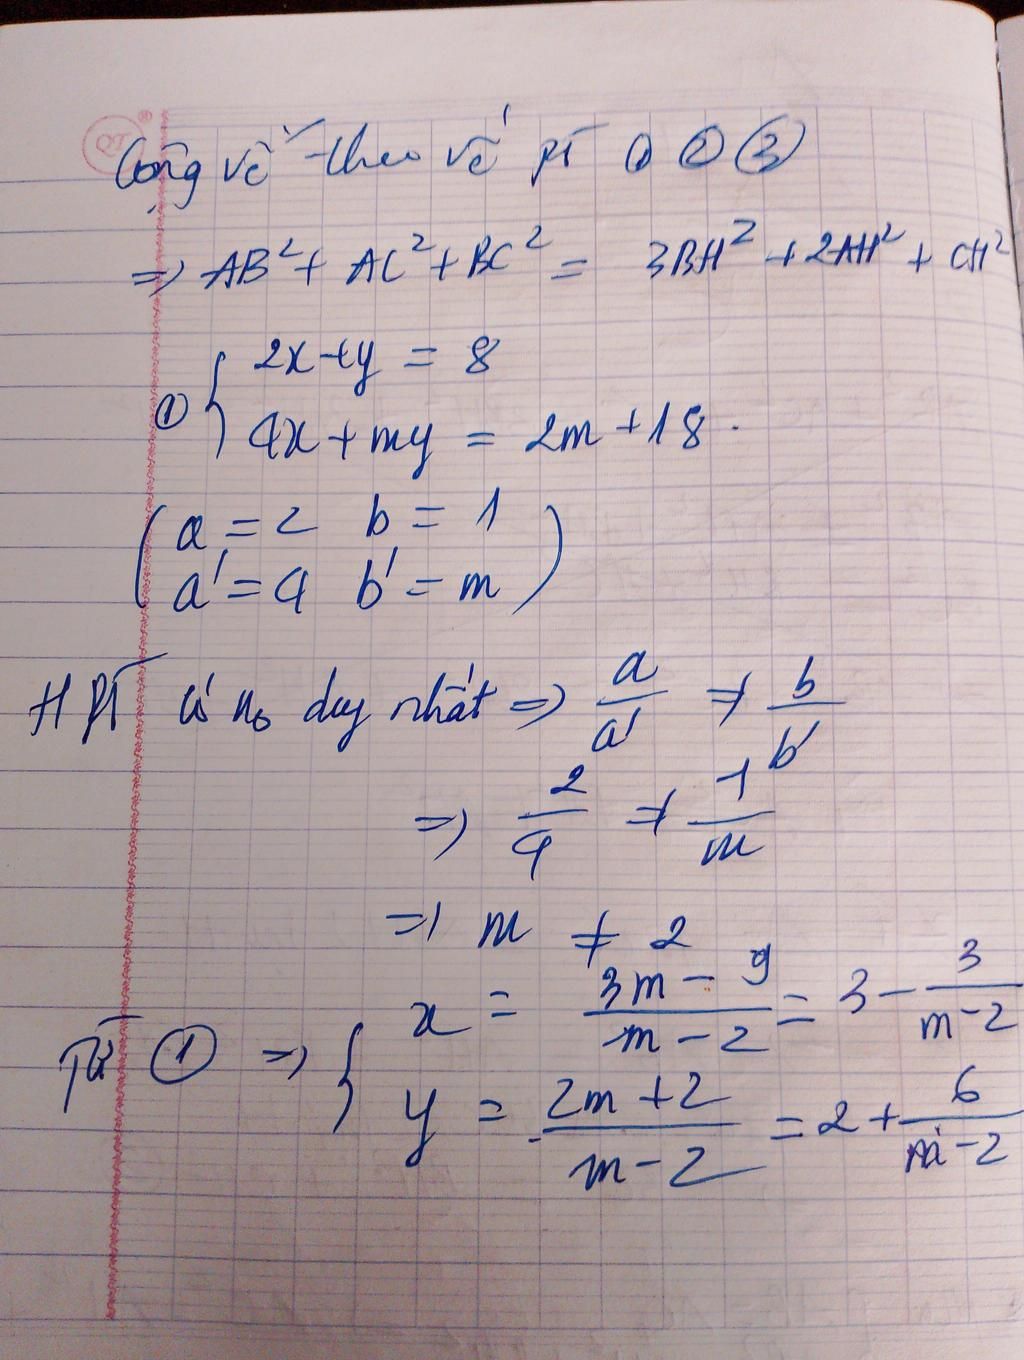 Cộng vế theo vế pt ① ② ③
=> AB² + AC² + BC² = 3BH² + 2AH² + CH²
① { 2x+y = 8
4x + my = 2m + 18.
( a = 2 b = 1
a' = 4 b' = m )
HPT có n₀ duy nhất => a/a' ≠ b/b'
=> 2/4 ≠ 1/m
=> m ≠ 2
x = (3m - 9)/(m - 2) = 3 - 3/(m-2)
Từ ① => { y = (2m + 2)/(m - 2) = 2 + 6/(m-2)